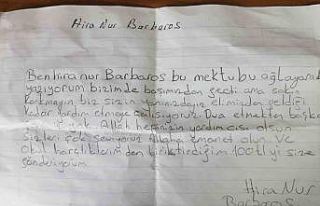 Hira Nur Barbaros
Ben hira nur Barbaros bu mektubu ağlayarak
yazıyorum bizimde başımızdan geçdi ama sakın
korkmayın biz sizin yanınızdayız elimizden geldiği
kadar yardım etmeye çalışıyoruz. Dua etmekten başka
Allah hepinizin yardımcısı olsun
sizleri çok seviyorum Allaha emanet olun. Ve
okul harçlıklarımdan biriktirdiğim 100 tl yi size
gönderiyorum
Hira Nur
Barbaros